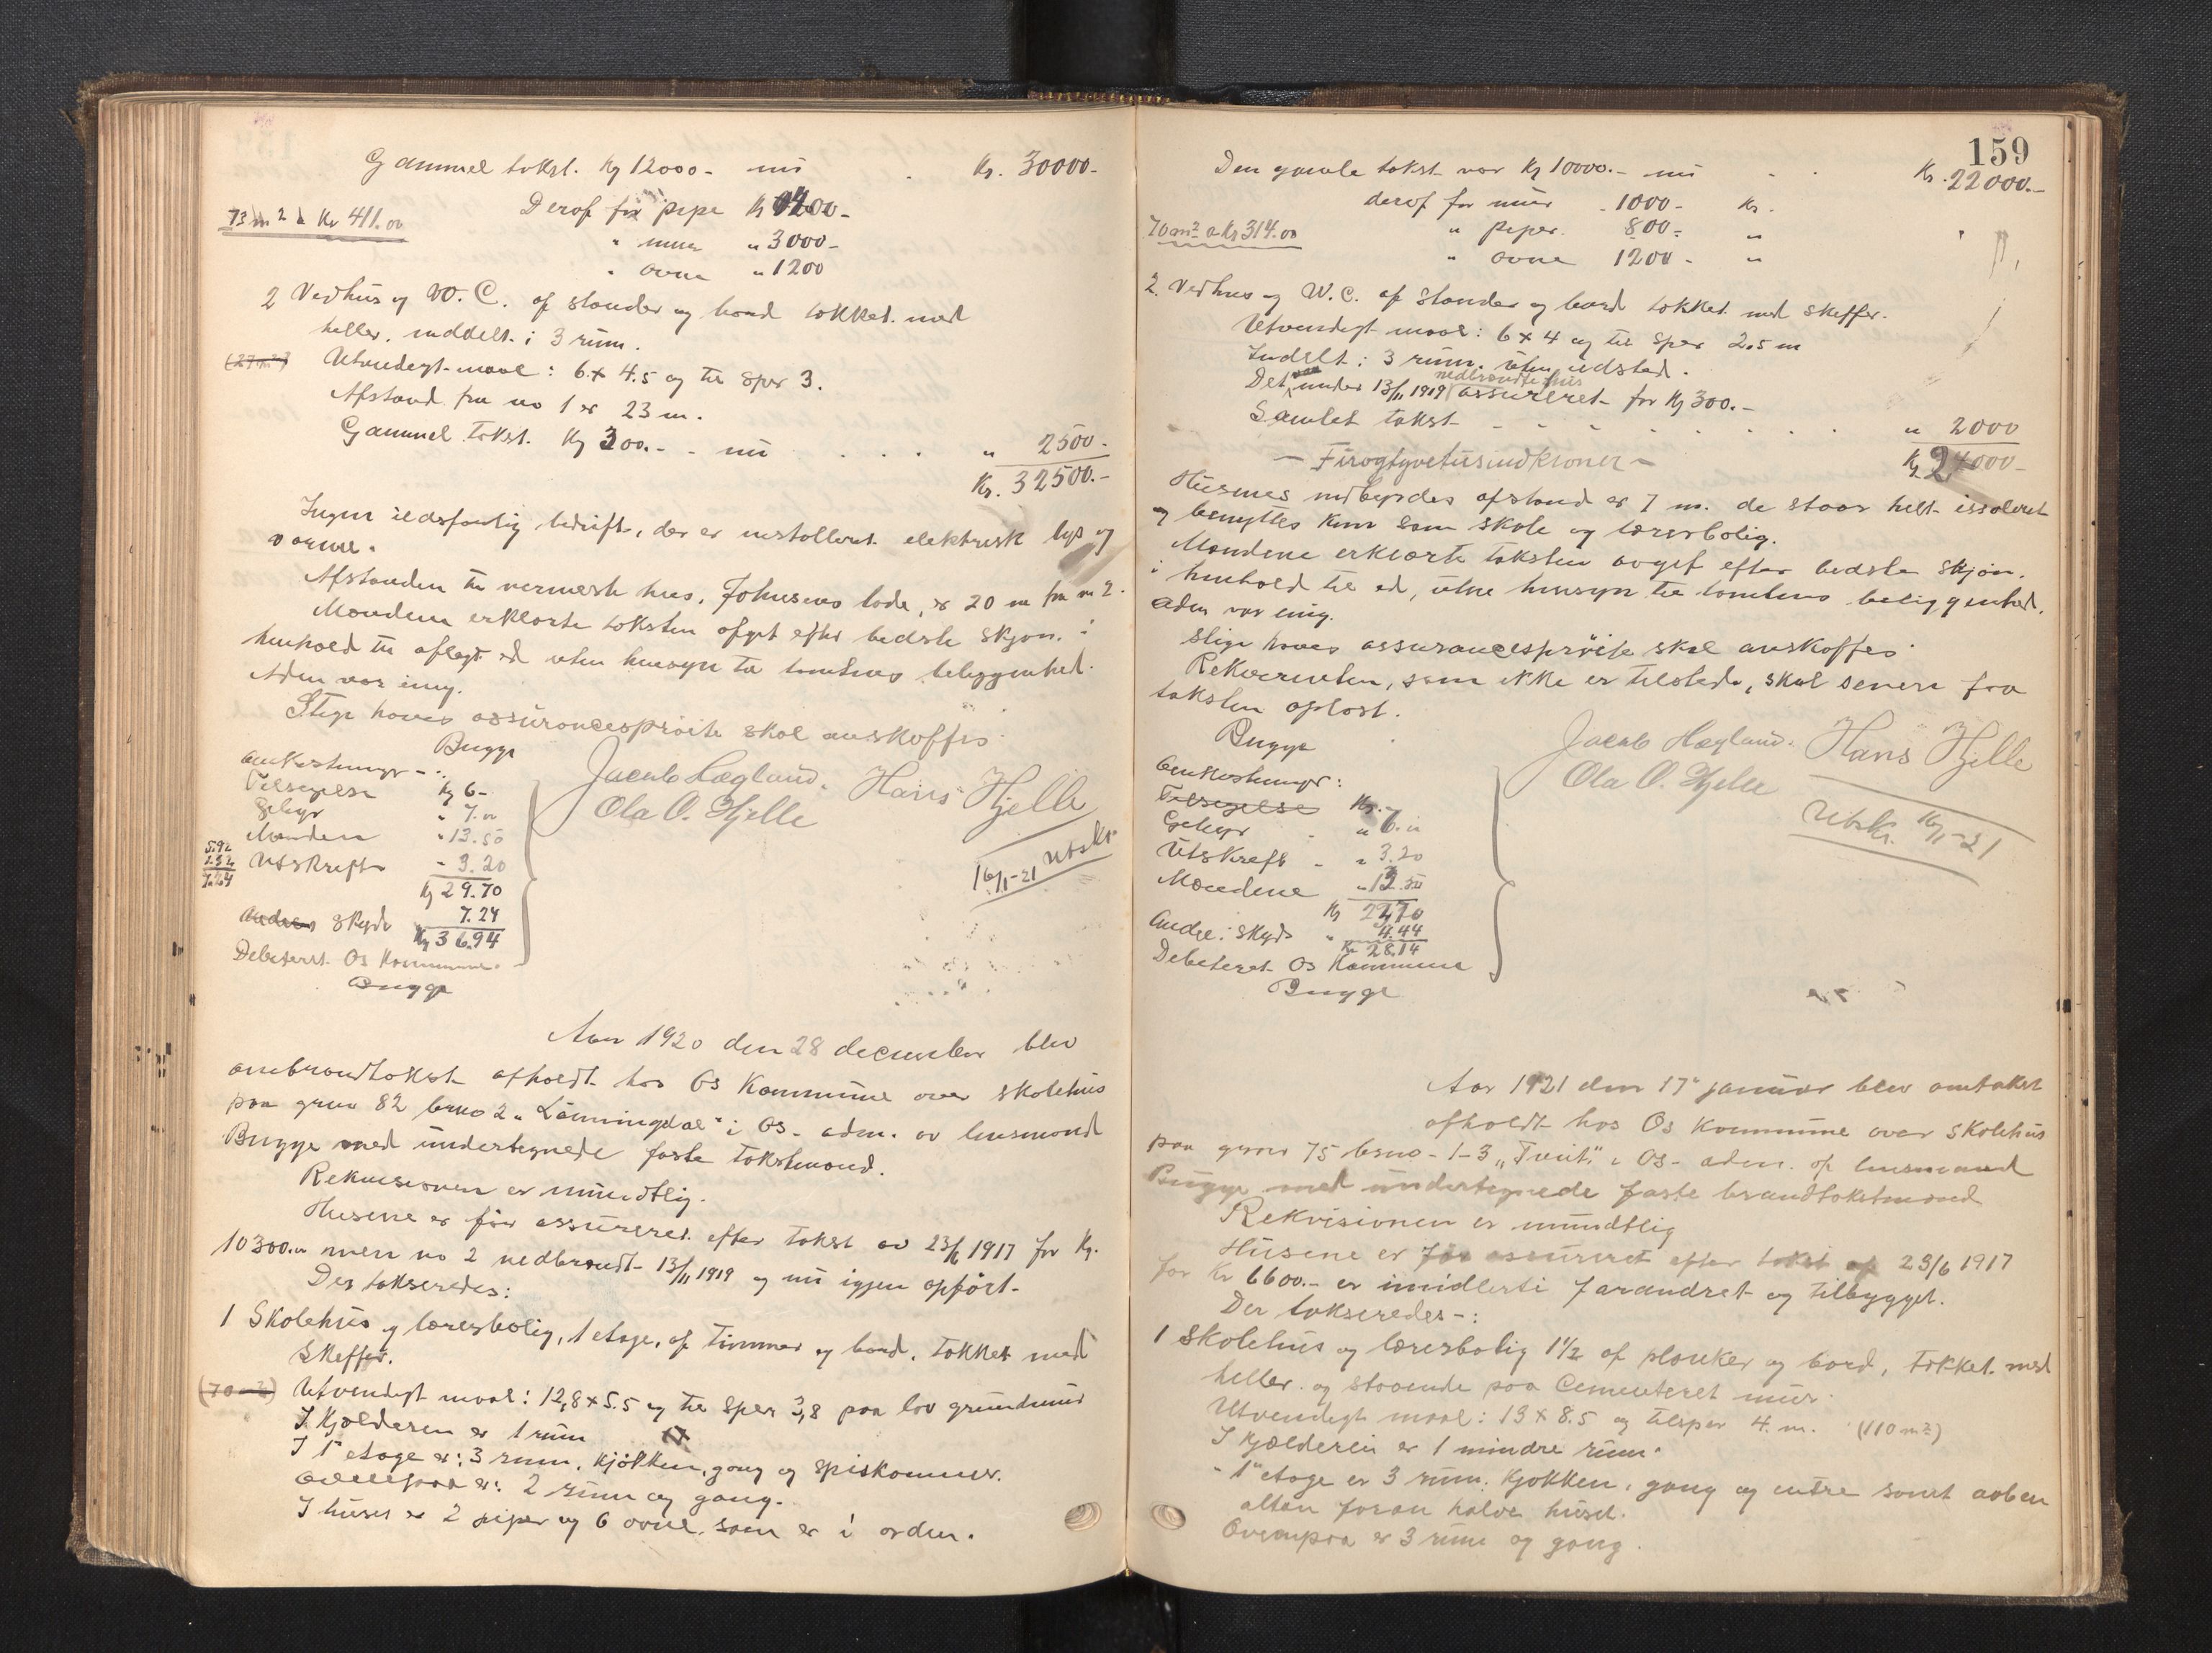 Gammel takst. Kr 12000- nu Kr. 30000-
Derof for pipe Kr 400-
73 m2 a Kr 411.00
" mur " 3000-
" ovne " 1200
2 Vedhus og W. C. af stander og bord tækket med
heller, inddelt i 3 rum.
(27 m2)
Utvendigt maal: 6 x 4.5 og til sper 3.
Afstand fra no 1 er 23 m.
Gammel takst. Kr 300.- - nu . . . " 2500-
Kr. 32500.-
Ingen ildsfarlig bedrift, der er installeret elektrisk lys og
varme.
Afstanden til nærmeste hus, lade, er 20 m fra no 2.
Mændene erklærte taksten afgit efter bedste skjøn i
henhold til aflagt ed uten hensyn til tomtens beliggenhed.
Adm var enig.
Stige haves assurancesprøite skal anskaffes.
Bugge
Omkostninger -:
Tilsigelse Kr 6-
Gebyr " 7.00
Mændene " 13.50
Utskrift - 3.20
Kr 29.70
5.92
1.32
7.24
Andres skyds 7.24
Kr 36.94
Debiteret Os Kommune.
Bugge
Jacob Hægland. Hans Hjelle
Ola O. Hjelle
Utskr. 16/1-21
Aar 1920 den 28 december blev
ombrandtakst afholdt hos Os Kommune over skolehus
paa grno 82 brno 2 "Lønningdal" i Os - adm. av lensmand
Bugge med undertegnede faste takstmænd.
Rekvisisionen er mundtlig.
Husene er før assureret efter takst av 23/6 1917 for Kr.
10300.00 men no 2 nedbrændt 13/11 1919 og nu igjen opført.
Der takseredes:
1 Skolehus og lærerbolig, 1 etage, af tømmer og bord, tækket med
skeffer.
(70 m2)
Utvendigt maal: 12,8 x 5.5 og til sper 3,8 paa lav grundmur
I Kjælderen er 1 rum
I 1ste etage er: 3 rum, kjøkken, gang og spiskammer.
Ovenpaa er: 2 rum og gang.
I huset er 2 piper og 6 ovne, som er i orden.
159
Den gamle takst var Kr 10000.- nu - - Kr. 22000.-
derof for mur - 1000- Kr.
70 m2 a Kr 314.00
" piper. 800- "
" ovne 1200 - "
2. Vedhus og W.C. af stander og bord tækket med skeffer.
Utvendigt maal: 6 x 4 og til sper 2.5 m
Indelt i 3 rum, uten ildsted.
Det under 13/11 1919 nedbrændte hus assureret for Kr 300.-
Samlet takst - - - - - " 2000
- Fireogtyvetusindkroner - Kr 24000-
Husenes indbyrdes afstand er 7 m. de staar helt issoleret
og benyttes kun som skole og lærerbolig.
Mændene erklærte taksten avgit efter bedste skjøn,
i henhold til ed, uten hensyn til tomtens beliggenhed.
Adm var enig.
Stige haves assurancesprøite skal anskaffes.
Rekvirenten, som ikke er tilstede, skal senere faa
taksten oplæst.
Bugge
Jacob Hægland. Hans Hjelle
Ola O. Hjelle
Utskr. 16/1-21
Omkostninger:
Tilsigelse Kr. -
Gebyr - " 6.00
Utskrift - " 3.20
Mændene " 13.50
Kr 22.70
Andre: Skyds " 4.44
Kr 28.14
Debiteret Os Kommune
Bugge
Aar 1921 den 17de januar blev omtakst
afholdt hos Os Kommune over skolehus
paa grno 75 brno - 1-3 "Tveit" i Os - adm. af lensmand
Bugge med undertegnede faste brandtakstmænd
Rekvisionen er mundtlig
Husene er før assureret efter takst af 23/6 1917
for Kr 6600.- er imidlerti farandret og tilbygget.
Der takseredes -:
1 Skolehus og lærerbolig 1 1/2 af planker og bord, tækket med
heller og staaende paa Cementeret mur.
Utvendigt maal: 13 x 8.5 og til sper 4. m. (110 m2)
I Kjælderen er 1 mindre rum.
- 1ste etage er 3 rum, Kjøkken, gang og entre samt aaben
altan foran halve huset.
Ovenpaa er 3 rum og gang.